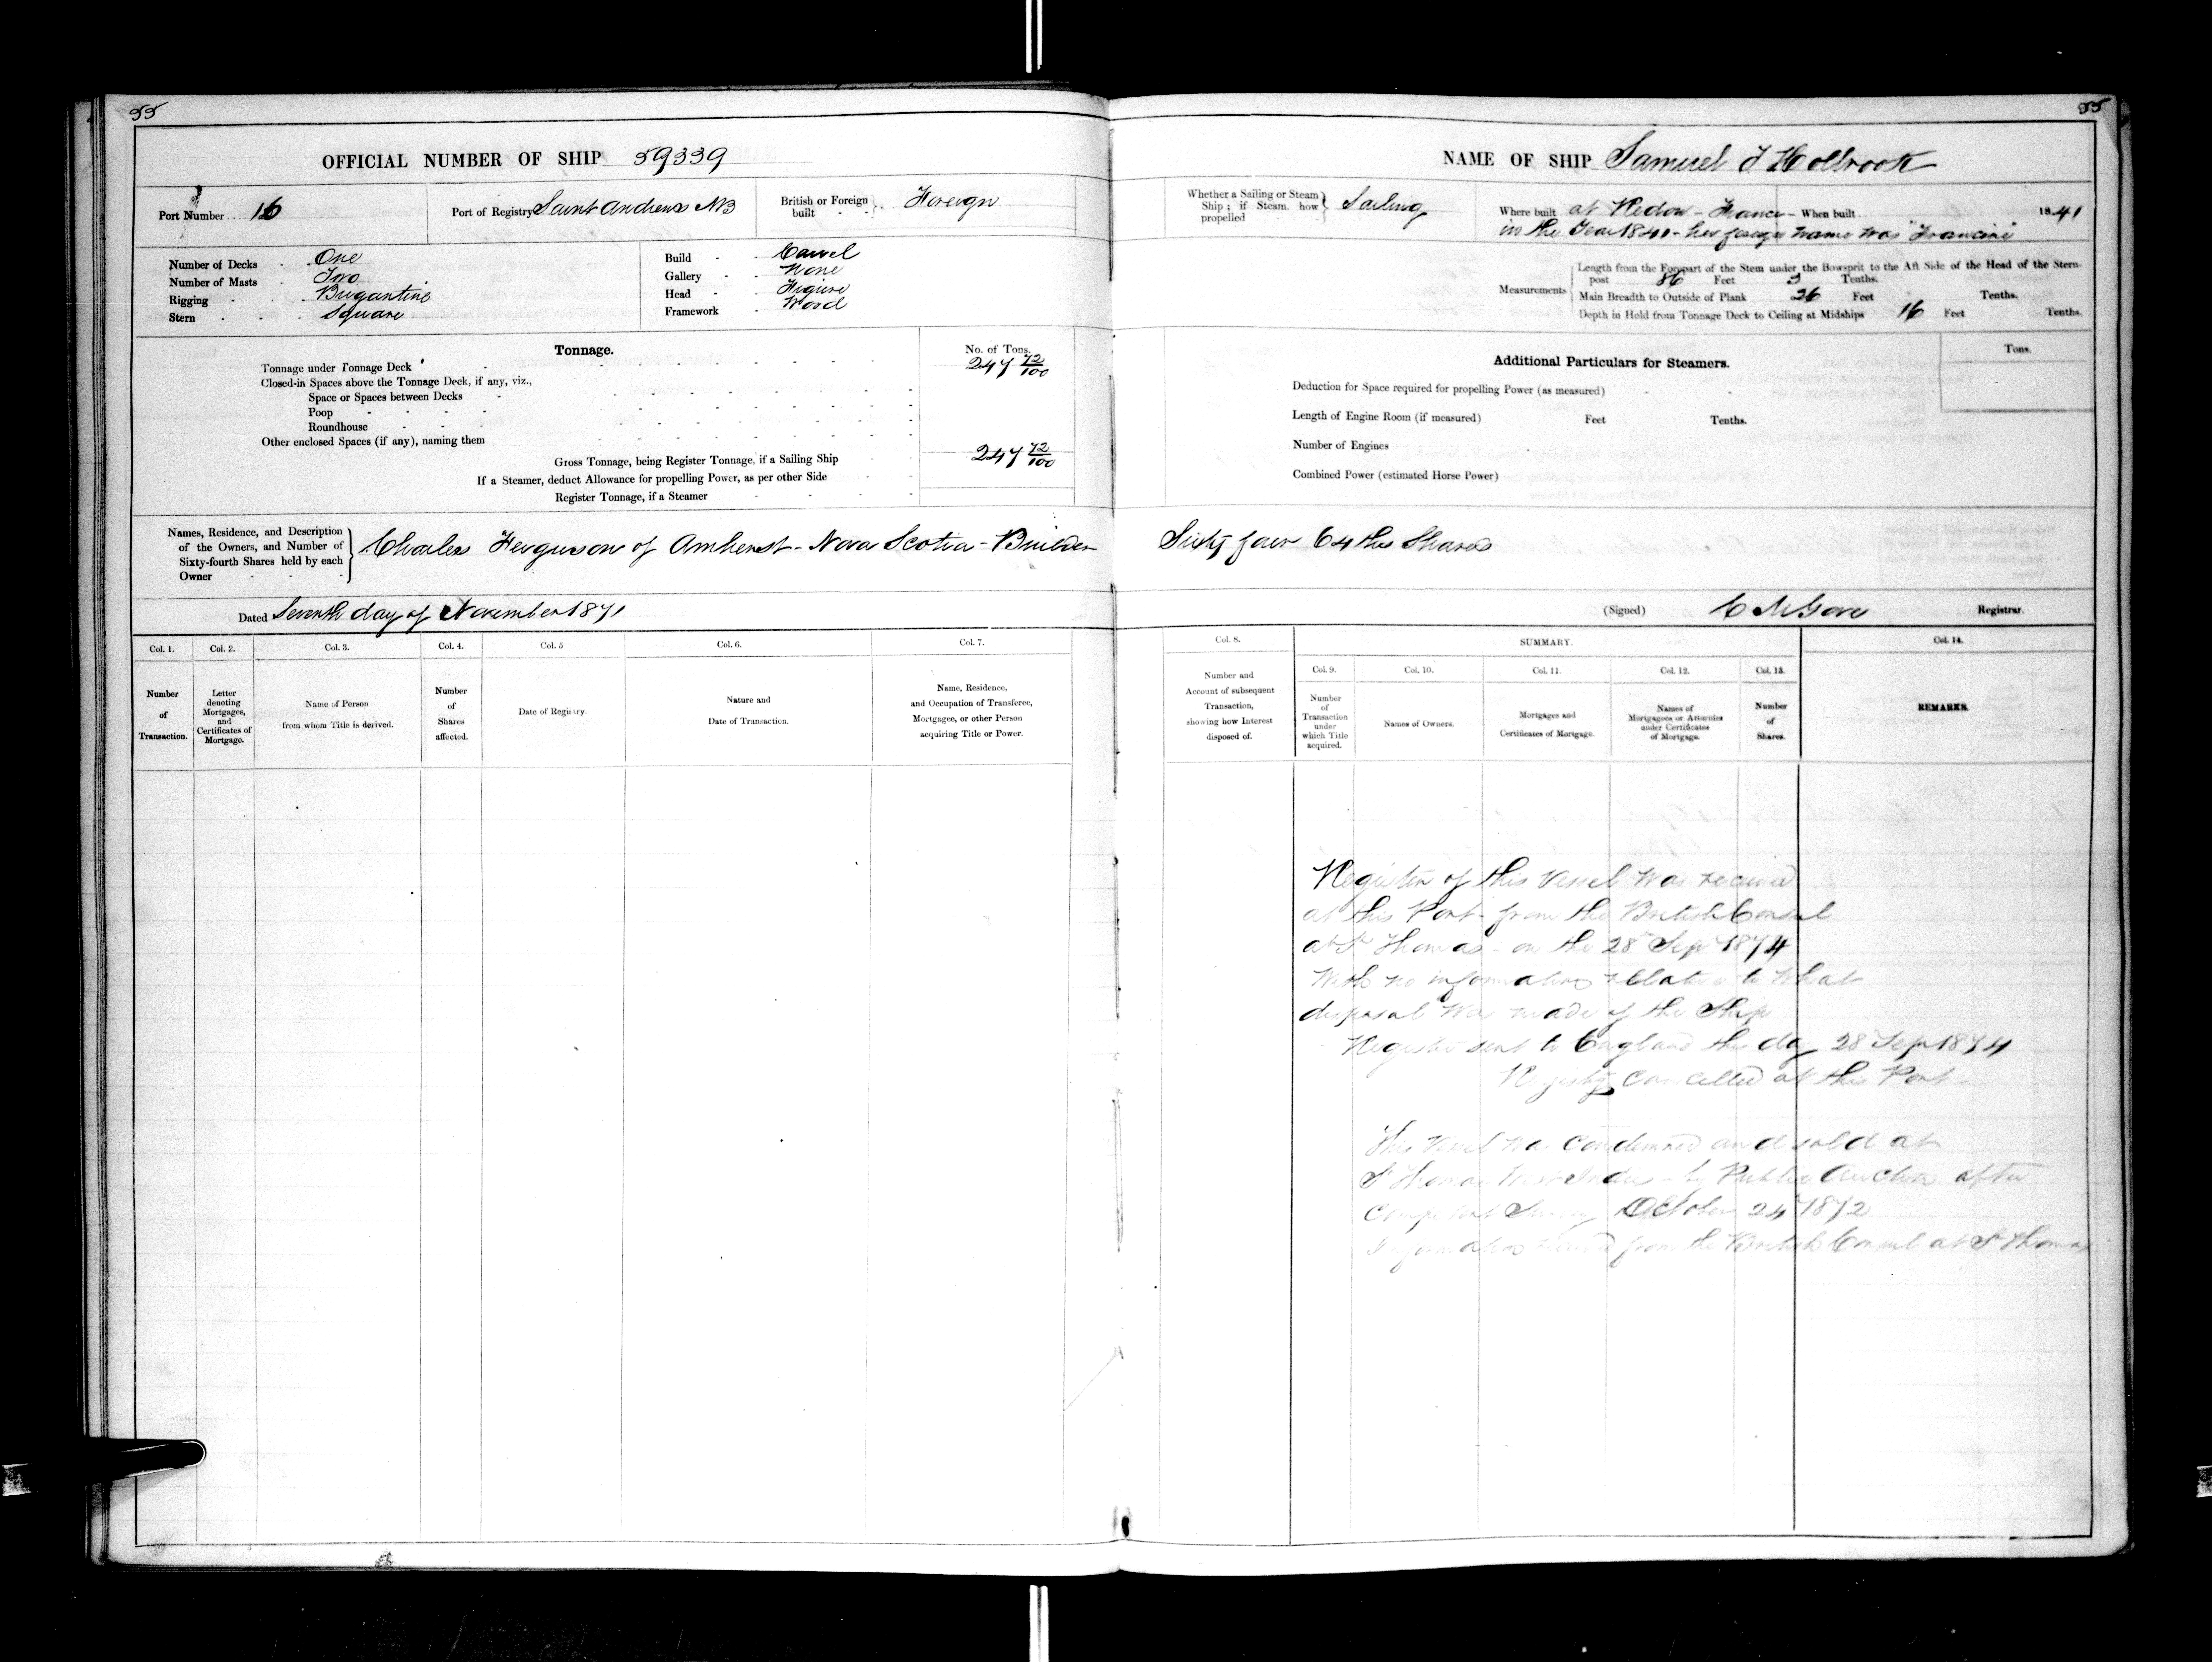 55
OFFICIAL NUMBER OF SHIP 59339
Port Number 16
Port of Registry Saint Andrews NB
British or Foreign built Foreign
Number of Decks One
Number of Masts Two
Rigging Brigantine
Stern Square
Build Carvel
Gallery None
Head Figure
Framework Wood
Tonnage.
No. of Tons.
Tonnage under Tonnage Deck 247 72/100
Closed-in Spaces above the Tonnage Deck, if any, viz.,
Space or Spaces between Decks
Poop
Roundhouse
Other enclosed Spaces (if any), naming them
Gross Tonnage, being Register Tonnage, if a Sailing Ship 247 72/100
If a Steamer, deduct Allowance for propelling Power, as per other Side
Register Tonnage, if a Steamer
Names, Residence, and Description
of the Owners, and Number of
Sixty-fourth Shares held by each
Owner
Charles Ferguson of Amherst - Nova Scotia - Builder
Dated Seventh day of November 1871
Col. 1.
Number
of
Transaction.
Col. 2.
Letter
denoting
Mortgages,
and
Certificates of
Mortgage.
Col. 3.
Name of Person
from whom Title is derived.
Col. 4.
Number
of
Shares
affected.
Col. 5
Date of Registry.
Col. 6.
Nature and
Date of Transaction.
Col. 7.
Name, Residence,
and Occupation of Transferee,
Mortgagee, or other Person
acquiring Title or Power.
55
NAME OF SHIP Samuel T Holbrook
Whether a Sailing or Steam
Ship; if Steam, how
propelled
Sailing
Where built at Redon - France - When built 1841
in the Year 1841 - her foreign name was "Francine"
Measurements
Length from the Forepart of the Stem under the Bowsprit to the Aft Side of the Head of the Stern-
post 86 Feet 3 Tenths.
Main Breadth to Outside of Plank 26 Feet Tenths.
Depth in Hold from Tonnage Deck to Ceiling at Midships 16 Feet Tenths.
Additional Particulars for Steamers.
Tons.
Deduction for Space required for propelling Power (as measured)
Length of Engine Room (if measured) Feet Tenths.
Number of Engines
Combined Power (estimated Horse Power)
Sixty four 64ths Shares
(Signed) C M Gove Registrar.
Col. 8.
Number and
Account of subsequent
Transaction,
showing how Interest
disposed of.
SUMMARY.
Col. 9.
Number
of
Transaction
under
which Title
acquired.
Col. 10.
Names of Owners.
Col. 11.
Mortgages and
Certificates of Mortgage.
Col. 12.
Names of
Mortgagees or Attornies
under Certificates
of Mortgage.
Col. 13.
Number
of
Shares.
Col. 14.
REMARKS.
Register of this Vessel was received
at this Port - from the British Consul
at St Thomas - on the 28 Sep 1874
With no information relative to What
disposal was made of the Ship
Register sent to England this day 28 Sep 1874
Registry cancelled at this Port -
This Vessel was Condemned and sold at
St Thomas West Indies - by Public Auction after
Survey October 24 1872
Information from the British Consul at St Thomas